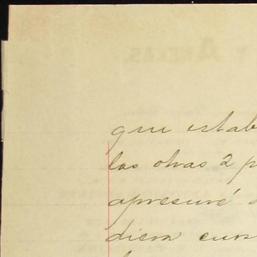 Y ANEXAS.
que estab
las otras 2 p
apresuré
diera cur